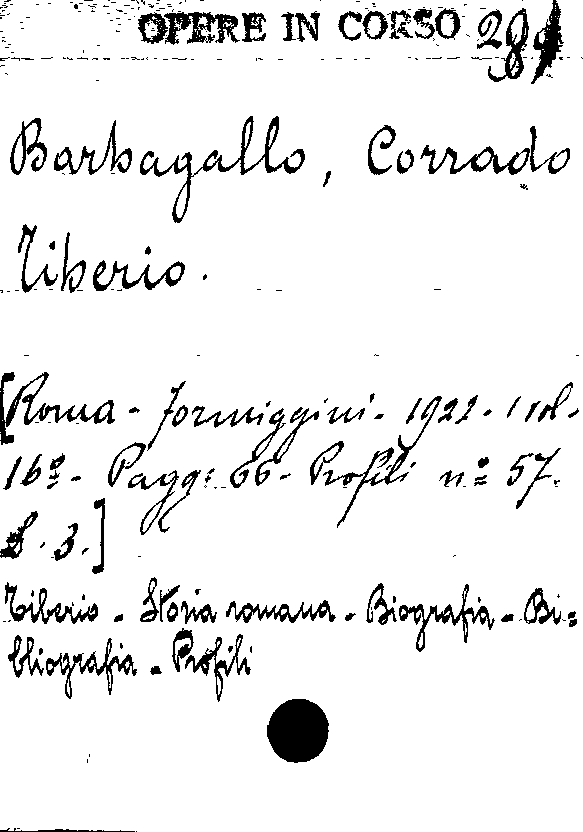 OPERE IN CORSO
Barbagallo, Corrado
Tiberio.
[Roma - Formiggini - 1922 - 1 vol -
16º - Pagg: 66 - Profili nº 57.
L. 3.]
Tiberio - Storia romana - Biografia - Bi=
bliografia - Profili